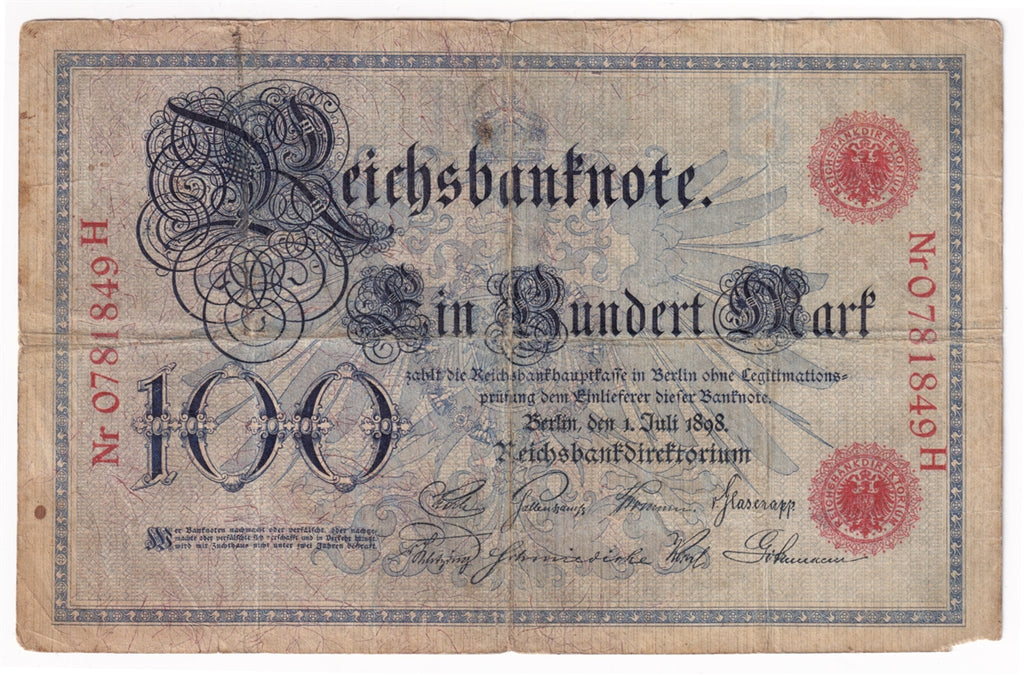 Reichsbanknote.
Ein Hundert Mark
zahlt die Reichsbankhauptkasse in Berlin ohne Legitimations-
prüfung dem Einlieferer dieser Banknote.
Berlin, den 1. Juli 1898.
Reichsbankdirektorium
100
Nr 0781849 H
Nr 0781849 H
REICHSBANKDIREKTORIUM
REICHSBANKDIREKTORIUM
B
v. Glasenapp
Schmiedicke
Gotzmann
Wer Banknoten nachmacht oder verfälscht, oder nachge-
machte oder verfälschte sich verschafft und in Verkehr bringt,
wird mit Zuchthaus nicht unter zwei Jahren bestraft.